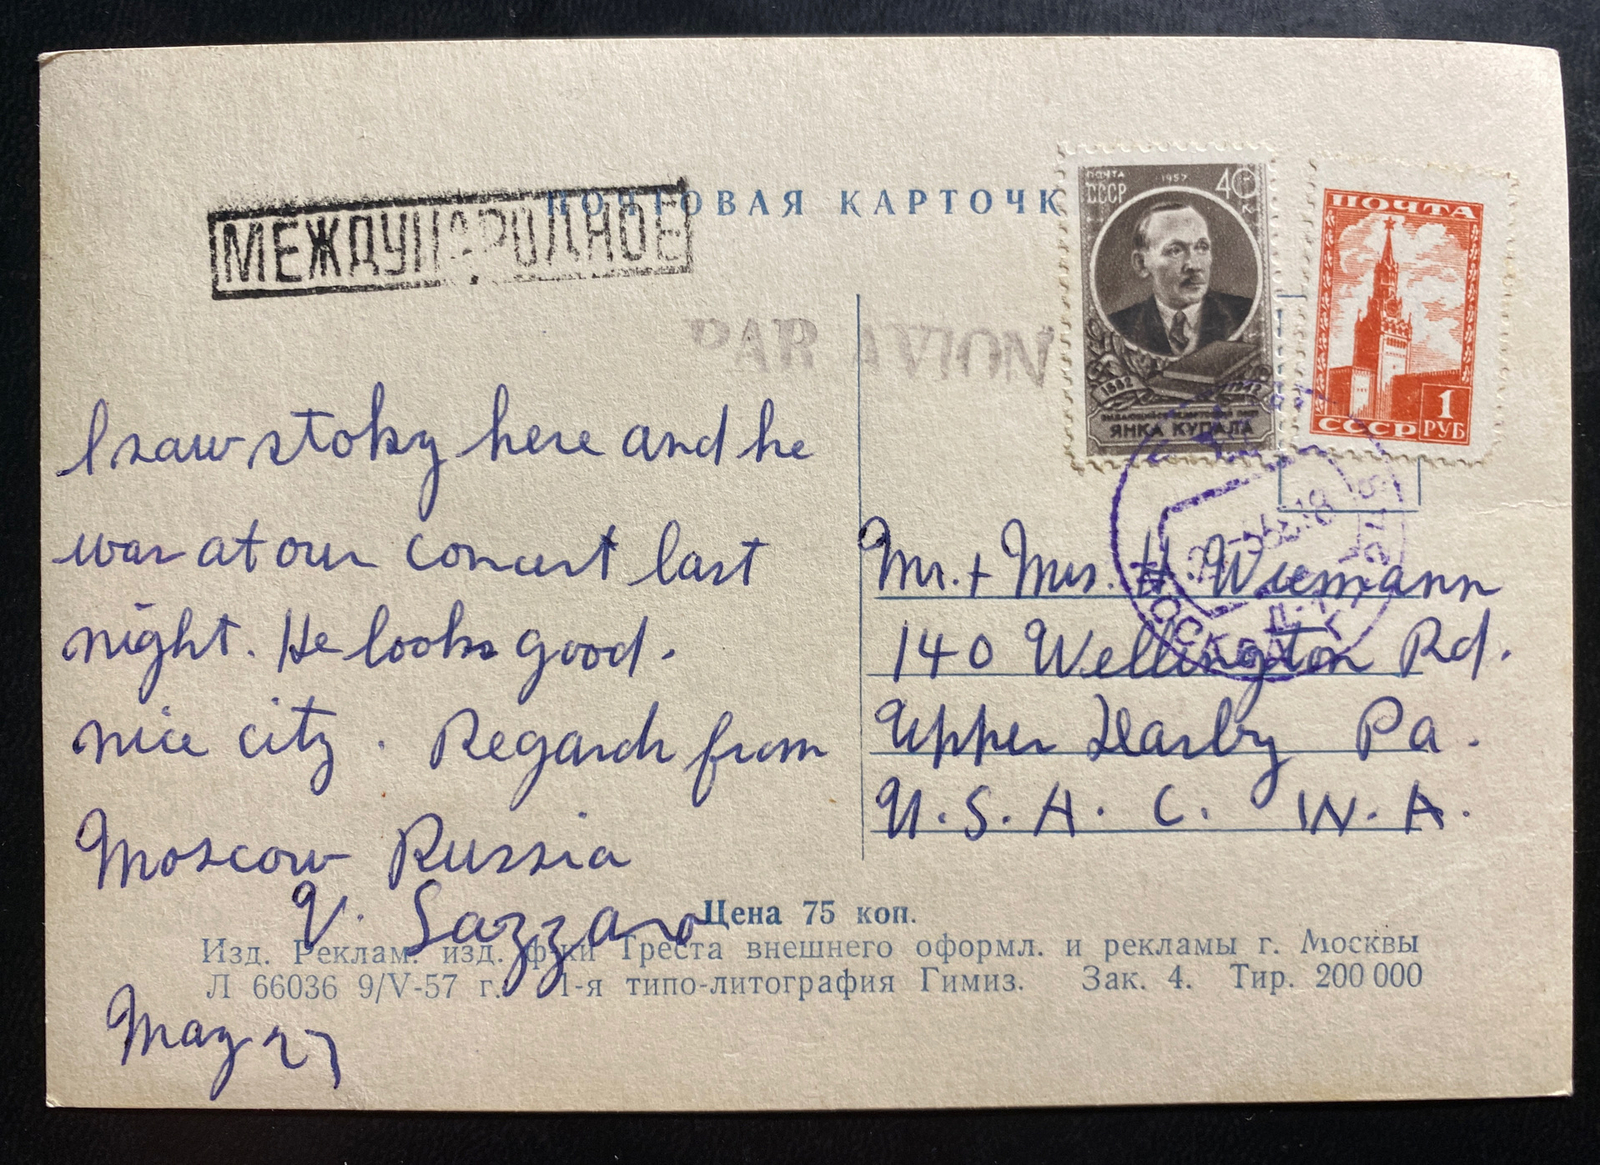 ПОЧТОВАЯ КАРТОЧК
МЕЖДУНАРОДНОЕ
PAR AVION
ПОЧТА
СССР
1957
40
К
1882
1942
ЯНКА КУПАЛА
ПОЧТА
1
СССР РУБ
МОСКВА
I saw stoky here and he
was at our concert last
night. He looks good.
nice city. Regards from
Moscow Russia
V. Sazzaro
May 27
Mr. + Mrs. H. Wiemann
140 Wellington Rd.
Upper Darby Pa.
U.S.A. C. W.A.
Цена 75 коп.
Изд. Реклам. изд. ф-ки Треста внешнего оформл. и рекламы г. Москвы
Л 66036 9/V-57 г. 1-я типо-литография Гимиз. Зак. 4. Тир. 200 000